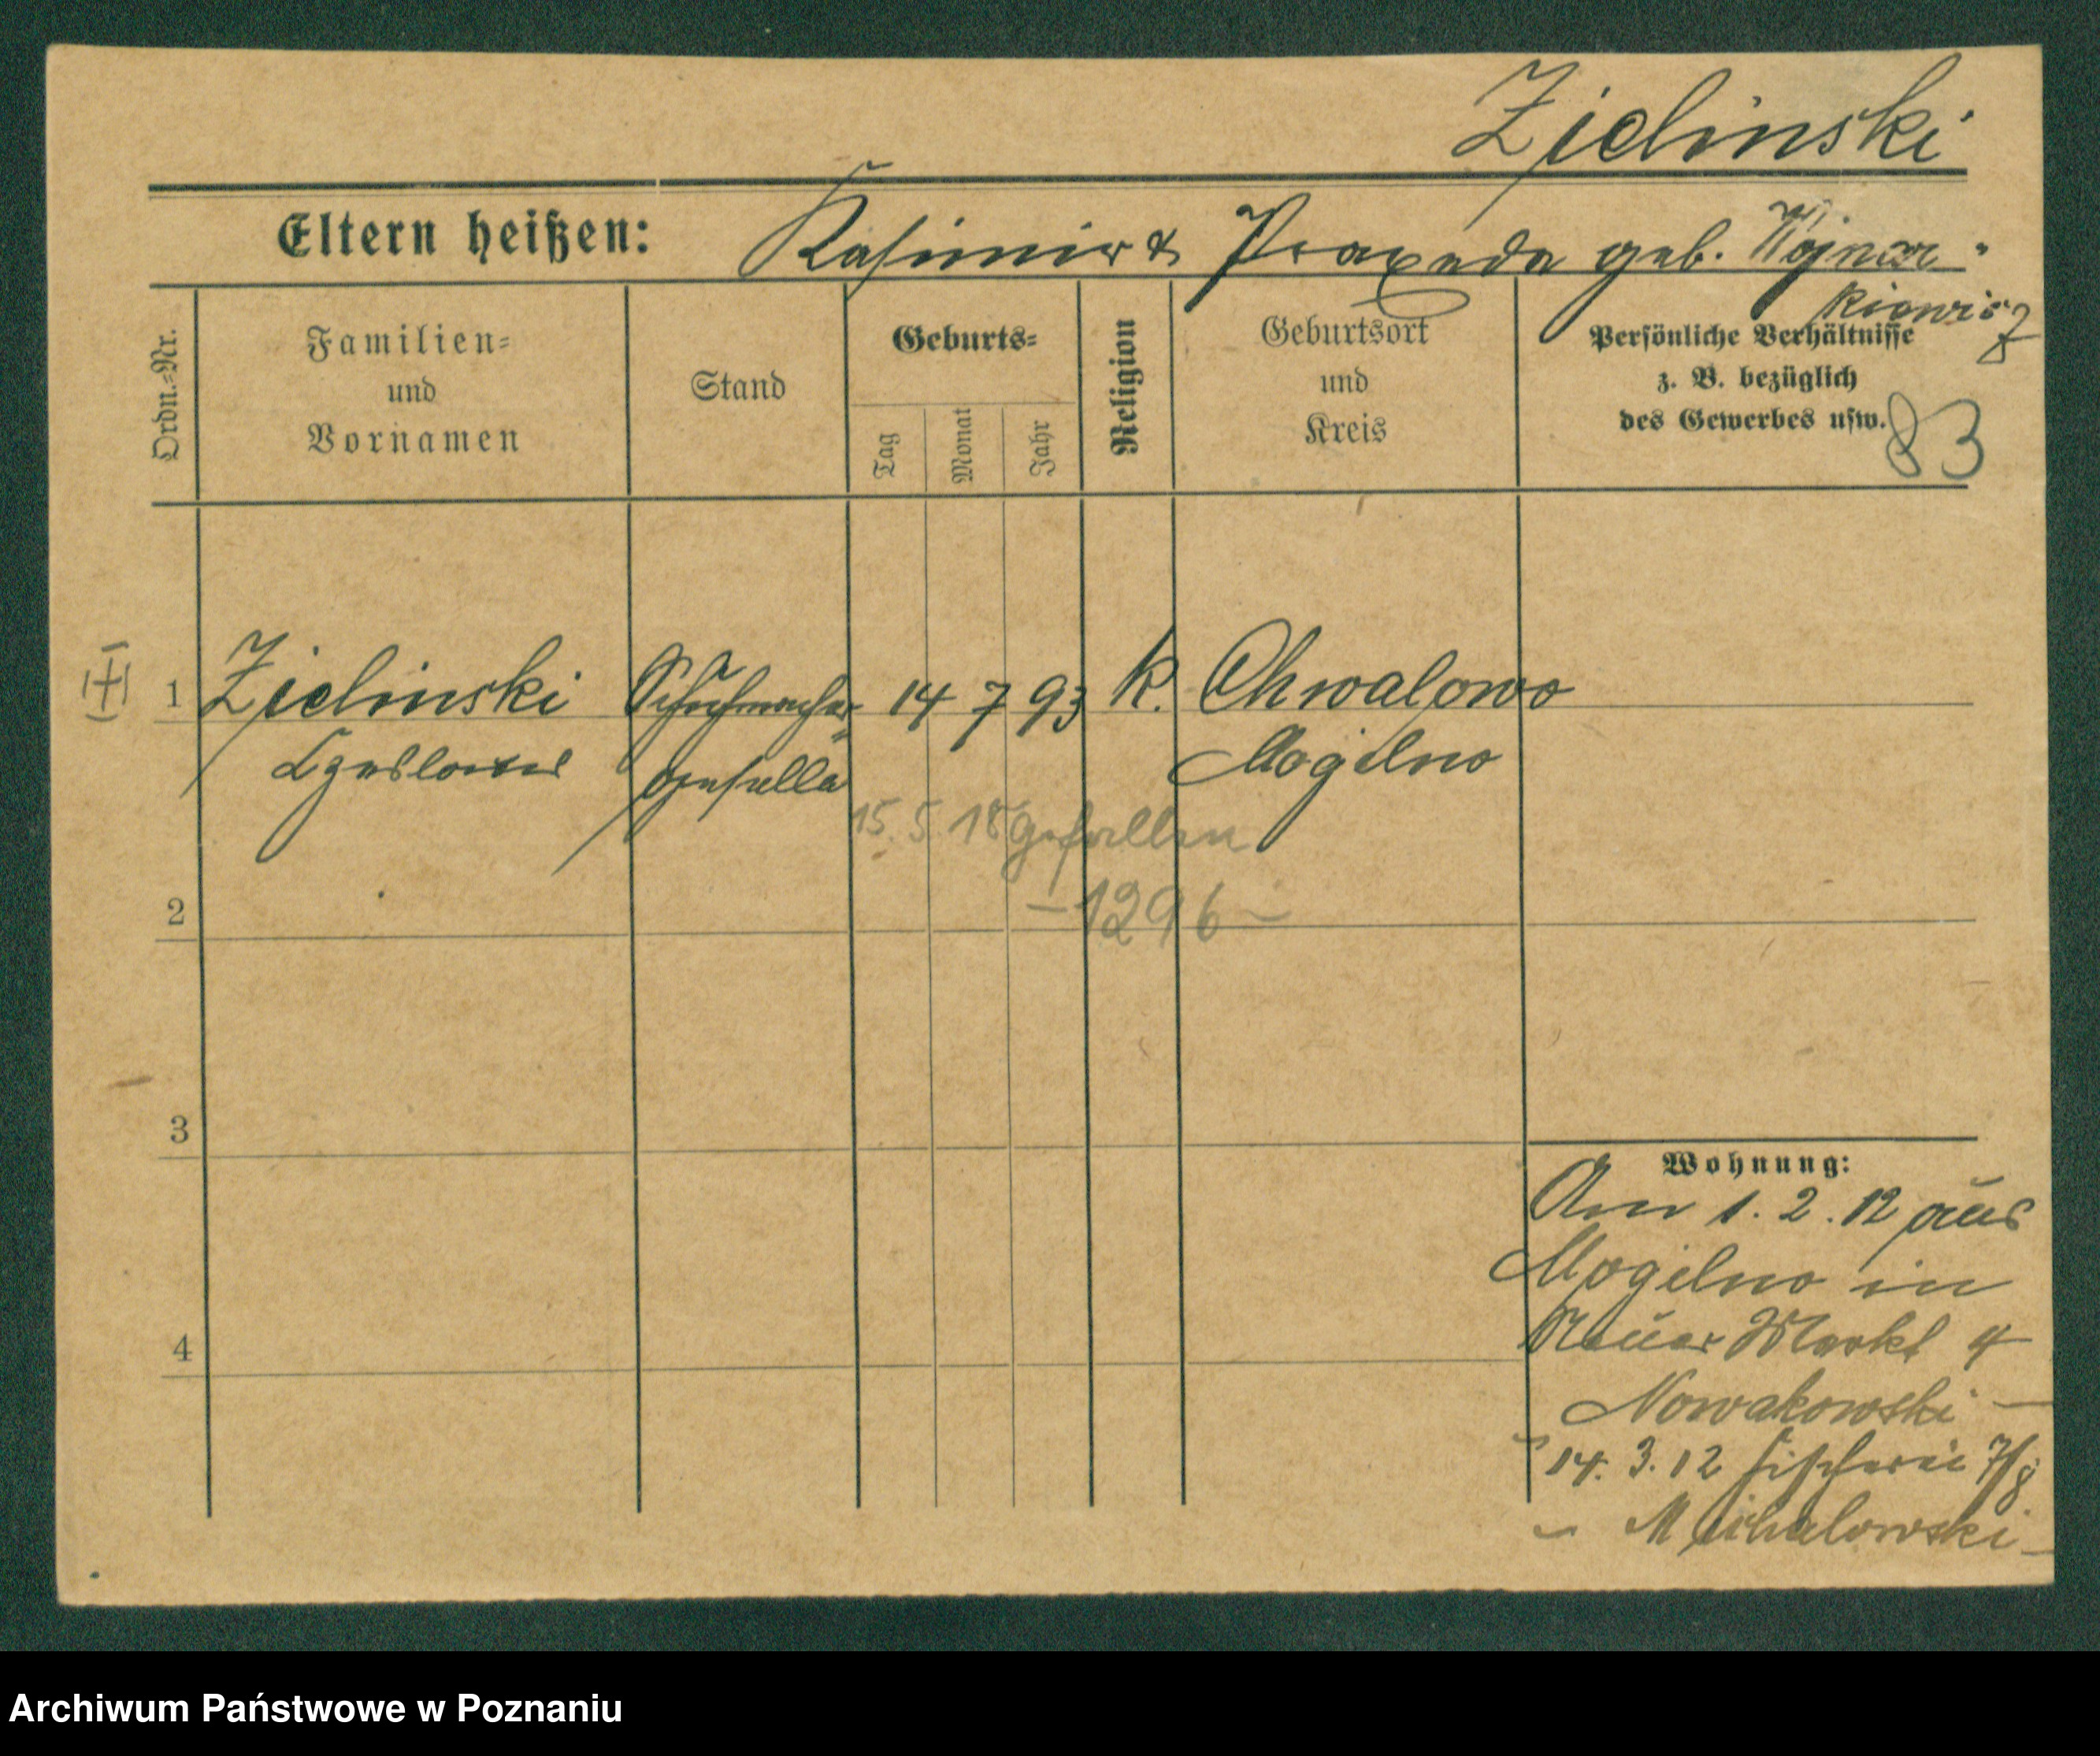 Zielinski
Eltern heißen: Kasimir & Praxeda geb. Wojnar-
kiewicz
Ordn.-Nr.
Familien-
und
Vornamen
Stand
Geburts-
Tag
Monat
Jahr
Religion
Geburtsort
und
Kreis
Persönliche Verhältnisse
z. B. bezüglich
des Gewerbes usw.
83
1 Zielinski Schuhmacher- 14 7 93 k. Chwalowo
Czeslaus geselle Mogilno
15. 5. 18 gefallen
-1296-
2
3
4
Wohnung:
Am 1. 2. 12 aus
Mogilno in
Neuer Markt 4
Nowakowski -
14. 3. 12 Fischerei 7/8
- Michalowski -
Archiwum Państwowe w Poznaniu